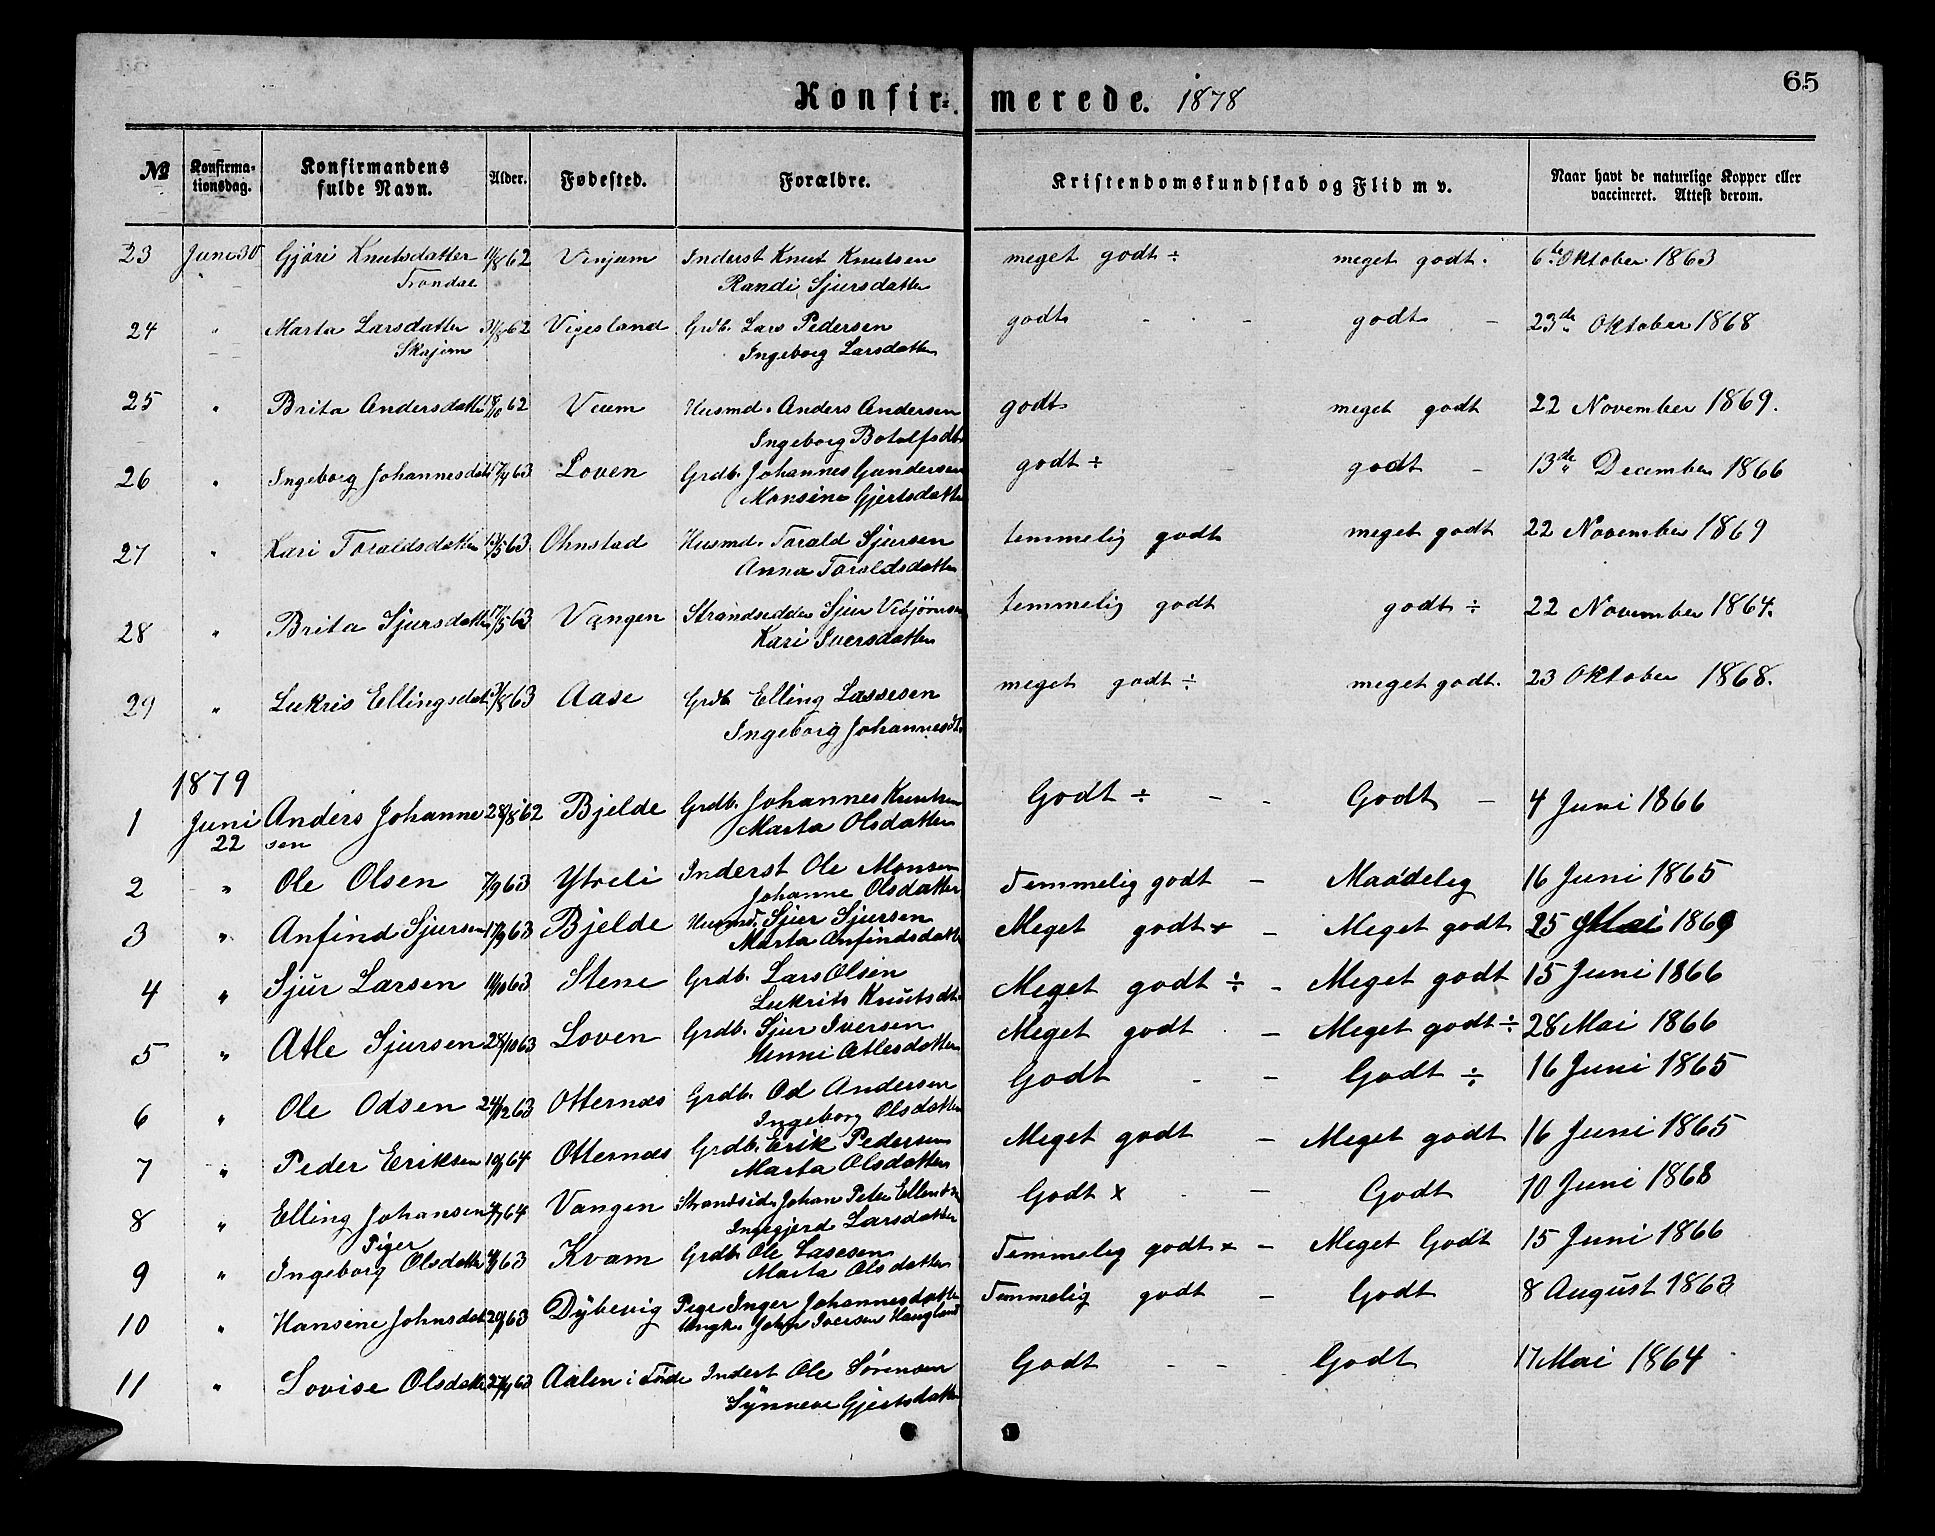 65
Konfir- merede. 1878
№ Konfirma- Konfirmandens Alder. Fødested. Forældre. Kristendomskundskab og Flid m v. Naar havt de naturlige Kopper eller
tionsdag. fulde Navn. vaccineret. Attest derom.
23 Juni 30 Gjøri Knutsdatter 11/8 62 Vinjum Inderst Knut Knutsen meget godt ÷ meget godt. 6te Oktober 1863
" Trondal Randi Sjursdatter
24 " Marta Larsdatter 31/8 62 Vigesland Grdb. Lars Pedersen godt - - godt - 23de Oktober 1868
Skajem Ingeborg Larsdatter
25 " Brita Andersdatter 18/10 62 Veum Husmd. Anders Andersen godt meget godt 22 November 1869.
Ingeborg Botolfsdtr
26 " Ingeborg Johannesdatr 17/4 63 Loven Grdb. Johannes Gundersen godt ÷ - godt - 13de December 1866
Monsine Gjertsdatter
27 " Kari Toraldsdatter 13/5 63 Ohnstad Husmd. Torald Sjursen temmelig godt meget godt 22 November 1869
Anna Toraldsdatter
28 " Brita Sjursdatter 17/5 63 Vangen Strandsidder Sjur Vibjørnsen temmelig godt godt ÷ 22 November 1864.
Kari Iversdatter
29 " Lukris Ellingsdatr 3/8 63 Aase Grdb Elling Lassesen meget godt ÷ meget godt. 23 Oktober 1868.
Ingeborg Johannesdtr
1879
1 Juni Anders Johanne 28/8 62 Bjelde Grdb. Johannes Knutsen Godt ÷ - - Godt - 4 Juni 1866
22 sen Marta Olsdatter
2 " Ole Olsen 7/9 63 Ytreli Inderst Ole Monsen Temmelig godt - Maadelig 16 Juni 1865
Johanne Olsdatter
3 " Anfind Sjursen 17/9 63 Bjelde Husmd. Sjur Sjursen Meget godt × - Meget godt 25 Mai 1869
Marta Anfindsdatter
4 " Sjur Larsen 11/10 63 Stene Grdb. Lars Olsen Meget godt ÷ - Meget godt 15 Juni 1866
Lukrits Knutsdtr.
5 " Atle Sjursen 28/10 63 Loven Grdb. Sjur Iversen Meget godt - Meget godt ÷ 28 Mai 1866
Henni Atlesdatter
6 " Ole Odsen 24/12 63 Otternæs Grdb. Od Andersen Godt - - Godt ÷ 16 Juni 1865
Ingeborg Olsdatter
7 " Peder Eriksen 10/1 64 Otternæs Grdb. Erik Pedersen Meget godt - Meget godt 16 Juni 1865
Marta Olsdatter
8 " Elling Johansen 4/7 64 Vangen Strandsid. Johan Peter Godt × - Godt 10 Juni 1868
Ingegjerd Larsdatter
Piger
9 " Ingeborg Olsdatter 63 Kvam Grdb. Ole Lasesen Temmelig godt × - Meget Godt 15 Juni 1866
Marta Olsdatter
10 " Hansine Johnsdat 63 Dybevig Pige Inger Johannesdatter Temmelig godt - Godt 8 August 1863
Ungk. John Iversen Haugland
11 " Lovise Olsdatter 63 Aalen i Førde Inderst Ole Sørensen Godt - - Godt 17 Mai 1864
Synneve Gjertsdatter